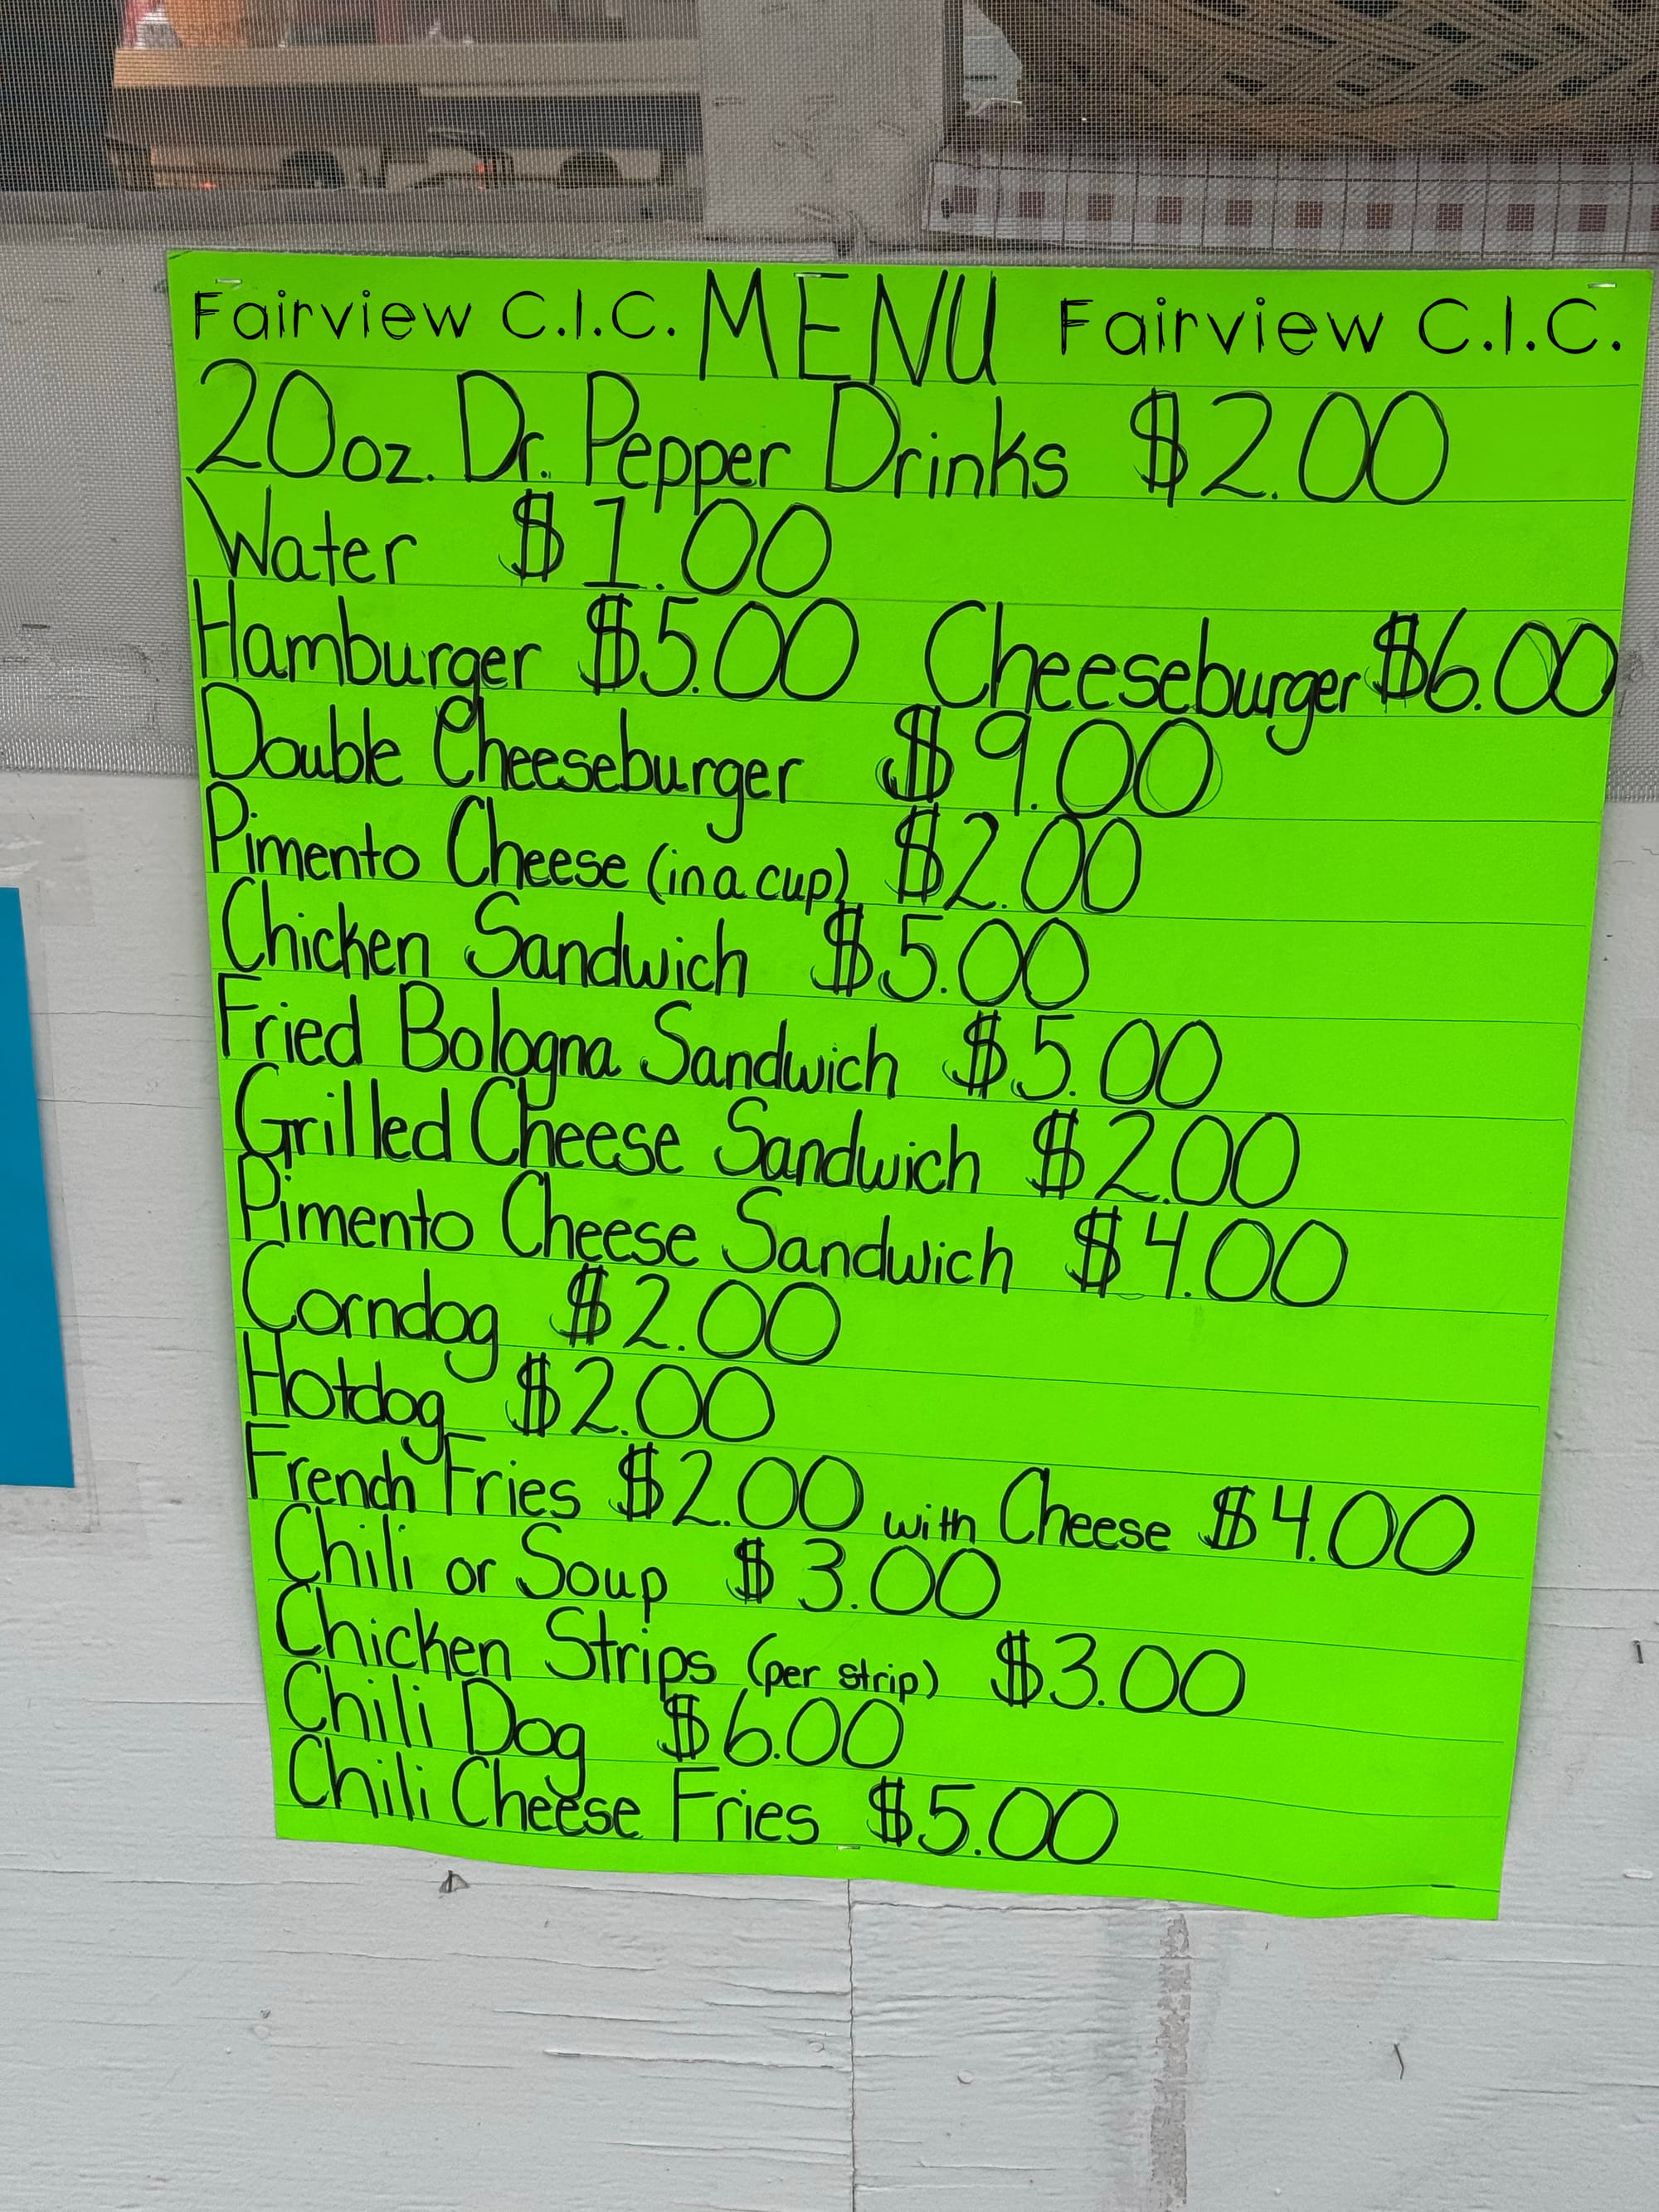 Fairview C.I.C. MENU Fairview C.I.C.
20oz. Dr. Pepper Drinks $2.00
Water $1.00
Hamburger $5.00 Cheeseburger $6.00
Double Cheeseburger $9.00
Pimento Cheese (in a cup) $2.00
Chicken Sandwich $5.00
Fried Bologna Sandwich $5.00
Grilled Cheese Sandwich $2.00
Pimento Cheese Sandwich $4.00
Corndog $2.00
Hotdog $2.00
French Fries $2.00 with Cheese $4.00
Chili or Soup $3.00
Chicken Strips (per strip) $3.00
Chili Dog $6.00
Chili Cheese Fries $5.00